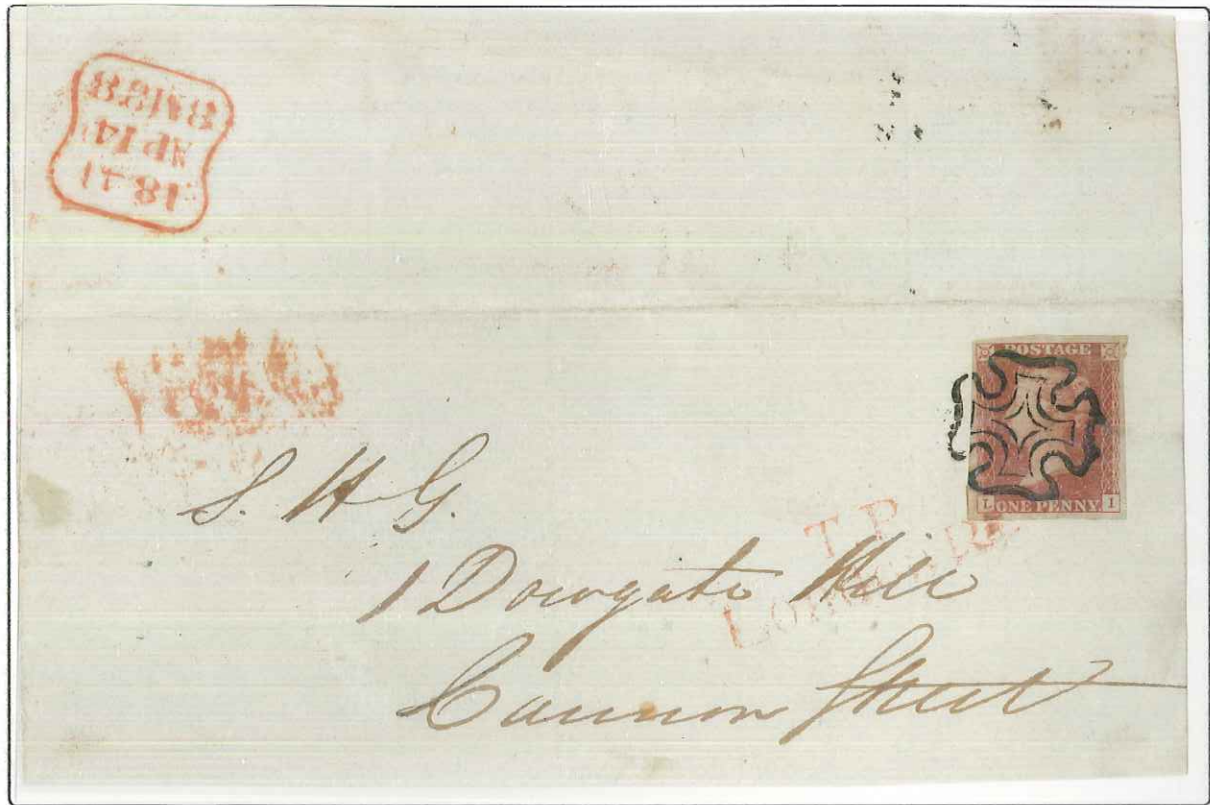 AP 14
1841
POSTAGE
L ONE PENNY I
T.P
S. H G.
1 Dowgate Hill
Cannon Street